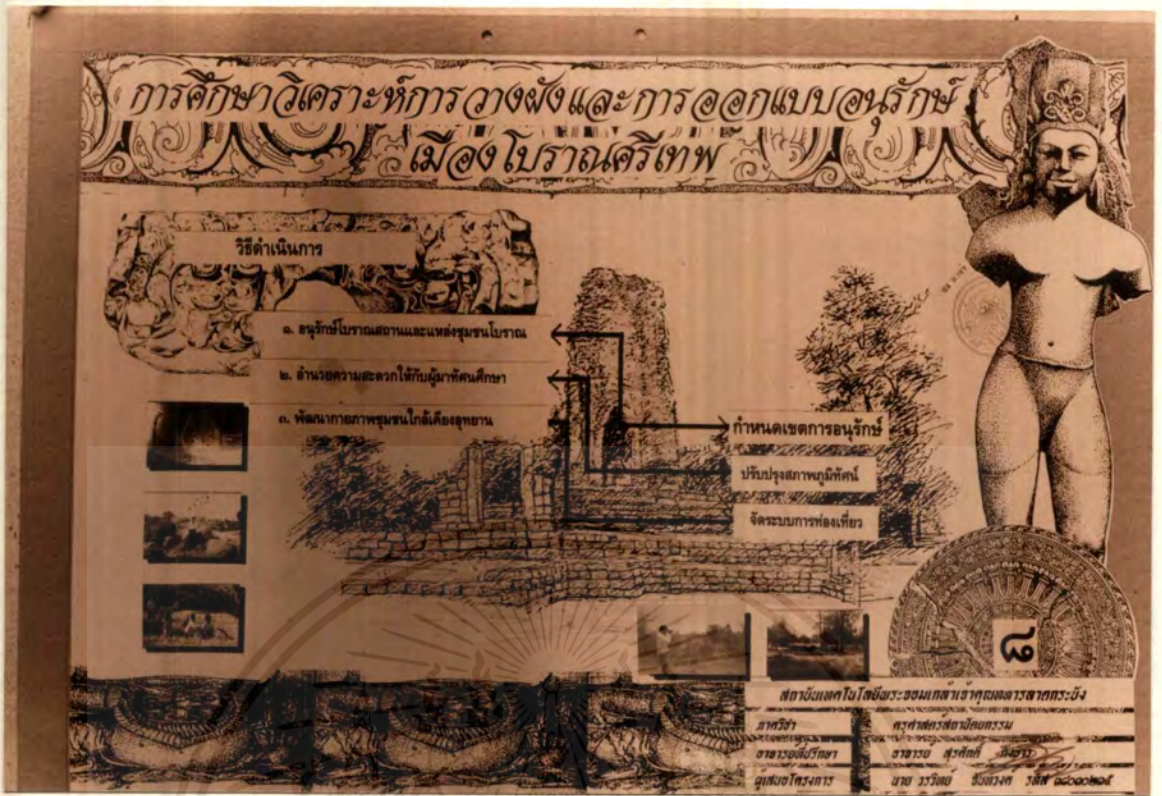 การศึกษาวิเคราะห์การวางผังและการออกแบบอนุรักษ์
เมืองโบราณศรีเทพ
วิธีดำเนินการ
๑. อนุรักษ์โบราณสถานและแหล่งชุมชนโบราณ
๒. อำนวยความสะดวกให้กับผู้มาทัศนศึกษา
๓. พัฒนากายภาพชุมชนใกล้เคียงอุทยาน
กำหนดเขตการอนุรักษ์
ปรับปรุงสภาพภูมิทัศน์
จัดระบบการท่องเที่ยว
๘
สถาบันเทคโนโลยีพระจอมเกล้าเจ้าคุณทหารลาดกระบัง
ภาควิชา ครุศาสตร์สถาปัตยกรรม
อาจารย์ที่ปรึกษา อาจารย์ สุรศักดิ์
ผู้เสนอโครงการ นาย วรวิทย์ รหัส